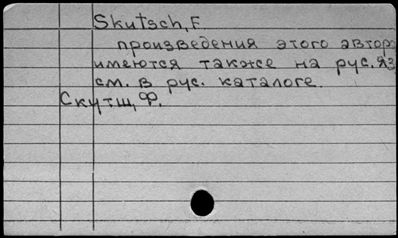 Skutsch, F.
произведения этого автор
имеются также на рус. яз
см. в рус. каталоге.
Скутш, Ф.